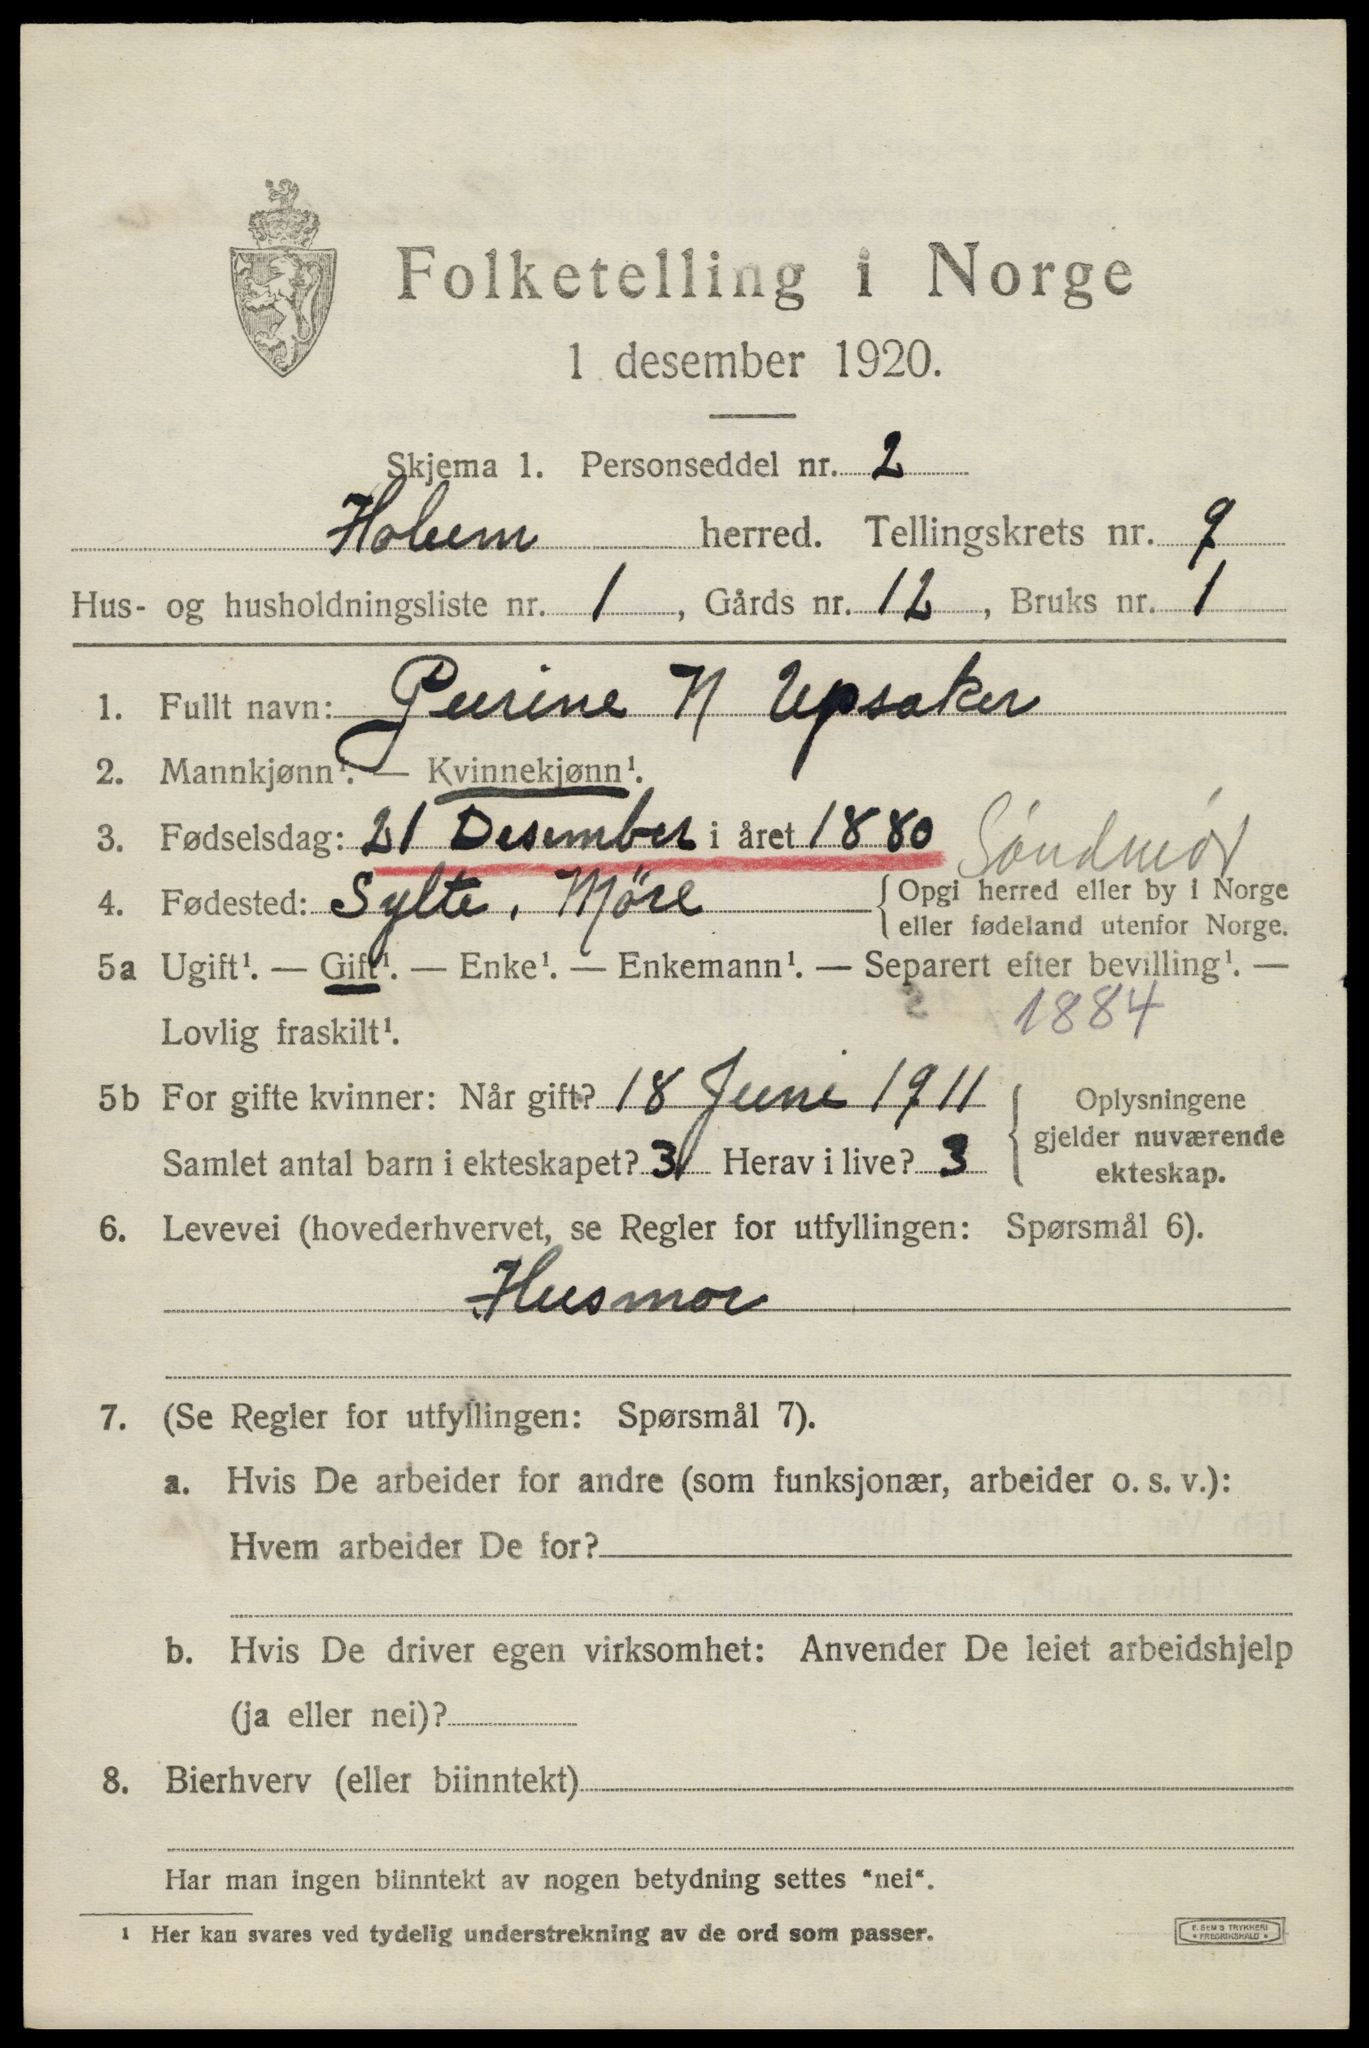 Folketelling i Norge
1 desember 1920.
Skjema 1. Personseddel nr. 2
Holum herred. Tellingskrets nr. 9
Hus- og husholdningsliste nr. 1, Gårds nr. 12, Bruks nr. 1
1. Fullt navn: Gurine N Upsaker
2. Mannkjønn¹. — Kvinnekjønn¹.
3. Fødselsdag: 21 Desember i året 1880 Söndmör
4. Fødested: Sylte, Möre {Opgi herred eller by i Norge
eller fødeland utenfor Norge.
5a Ugift¹. — Gift¹. — Enke¹. — Enkemann¹. — Separert efter bevilling¹. —
Lovlig fraskilt¹. 1884
5b For gifte kvinner: Når gift? 18 Juni 1911 { Oplysningene
gjelder nuværende
Samlet antal barn i ekteskapet? 3 Herav i live? 3 ekteskap.
6. Levevei (hovederhvervet, se Regler for utfyllingen: Spørsmål 6).
Husmor
7. (Se Regler for utfyllingen: Spørsmål 7).
a. Hvis De arbeider for andre (som funksjonær, arbeider o. s. v.):
Hvem arbeider De for?
b. Hvis De driver egen virksomhet: Anvender De leiet arbeidshjelp
(ja eller nei)?
8. Bierhverv (eller biinntekt)
Har man ingen biinntekt av nogen betydning settes "nei".
¹ Her kan svares ved tydelig understrekning av de ord som passer.
E. SEM'S TRYKKERI
• FREDRIKSHALD •